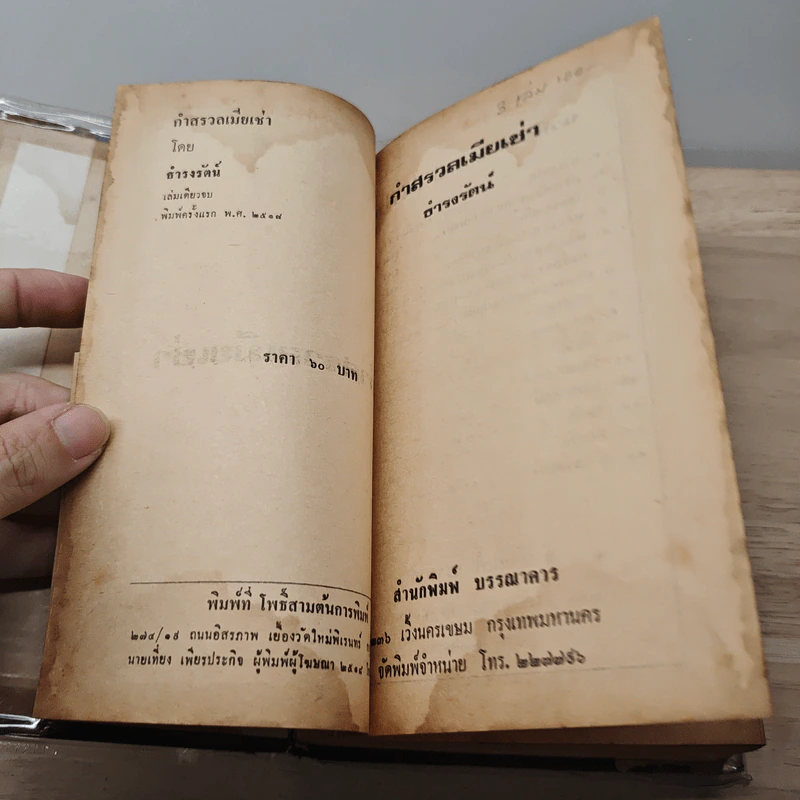 กำสรวลเมียเช่า
โดย
ธำรงรัตน์
เล่มเดียวจบ
พิมพ์ครั้งแรก พ.ศ. ๒๕๑๘
ราคา ๖๐ บาท
พิมพ์ที่ โพธิ์สามต้นการพิมพ์
๒๗๔/๑๙ ถนนอิสรภาพ เยื้องวัดใหม่พิเรนทร์
นายเที่ยง เพียรประกิจ ผู้พิมพ์ผู้โฆษณา ๒๕๑๘
๓ เล่ม ๑๘๐
กำสรวลเมียเช่า
ธำรงรัตน์
สำนักพิมพ์ บรรณาคาร
๒๓๖ เวิ้งนครเขษม กรุงเทพมหานคร
จัดพิมพ์จำหน่าย โทร. ๒๒๗๗๙๖